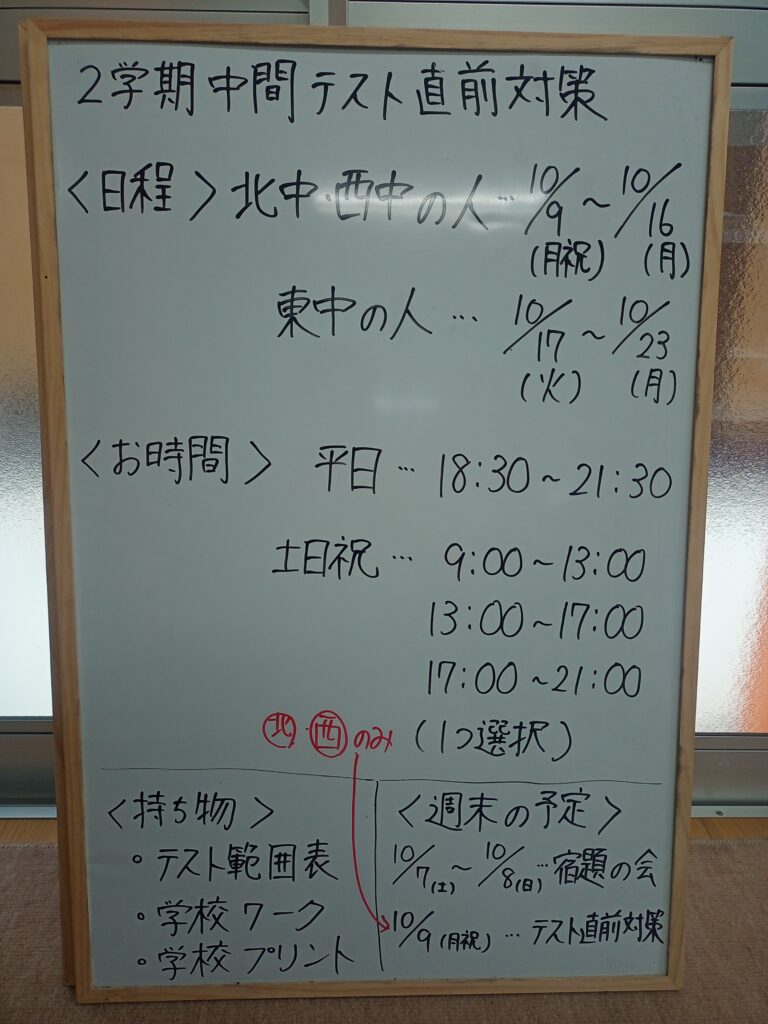 2学期中間テスト直前対策
<日程> 北中・西中の人… 10/9 ~ 10/16
(月祝) (月)
東中の人… 10/17 ~ 10/23
(火) (月)
<お時間> 平日… 18:30~21:30
土日祝… 9:00~13:00
13:00~17:00
17:00~21:00
㊗北・西のみ (1つ選択)
<持ち物>
・テスト範囲表
・学校ワーク
・学校プリント
<週末の予定>
10/7(土)~10/8(日)…宿題の会
10/9(月祝)…テスト直前対策